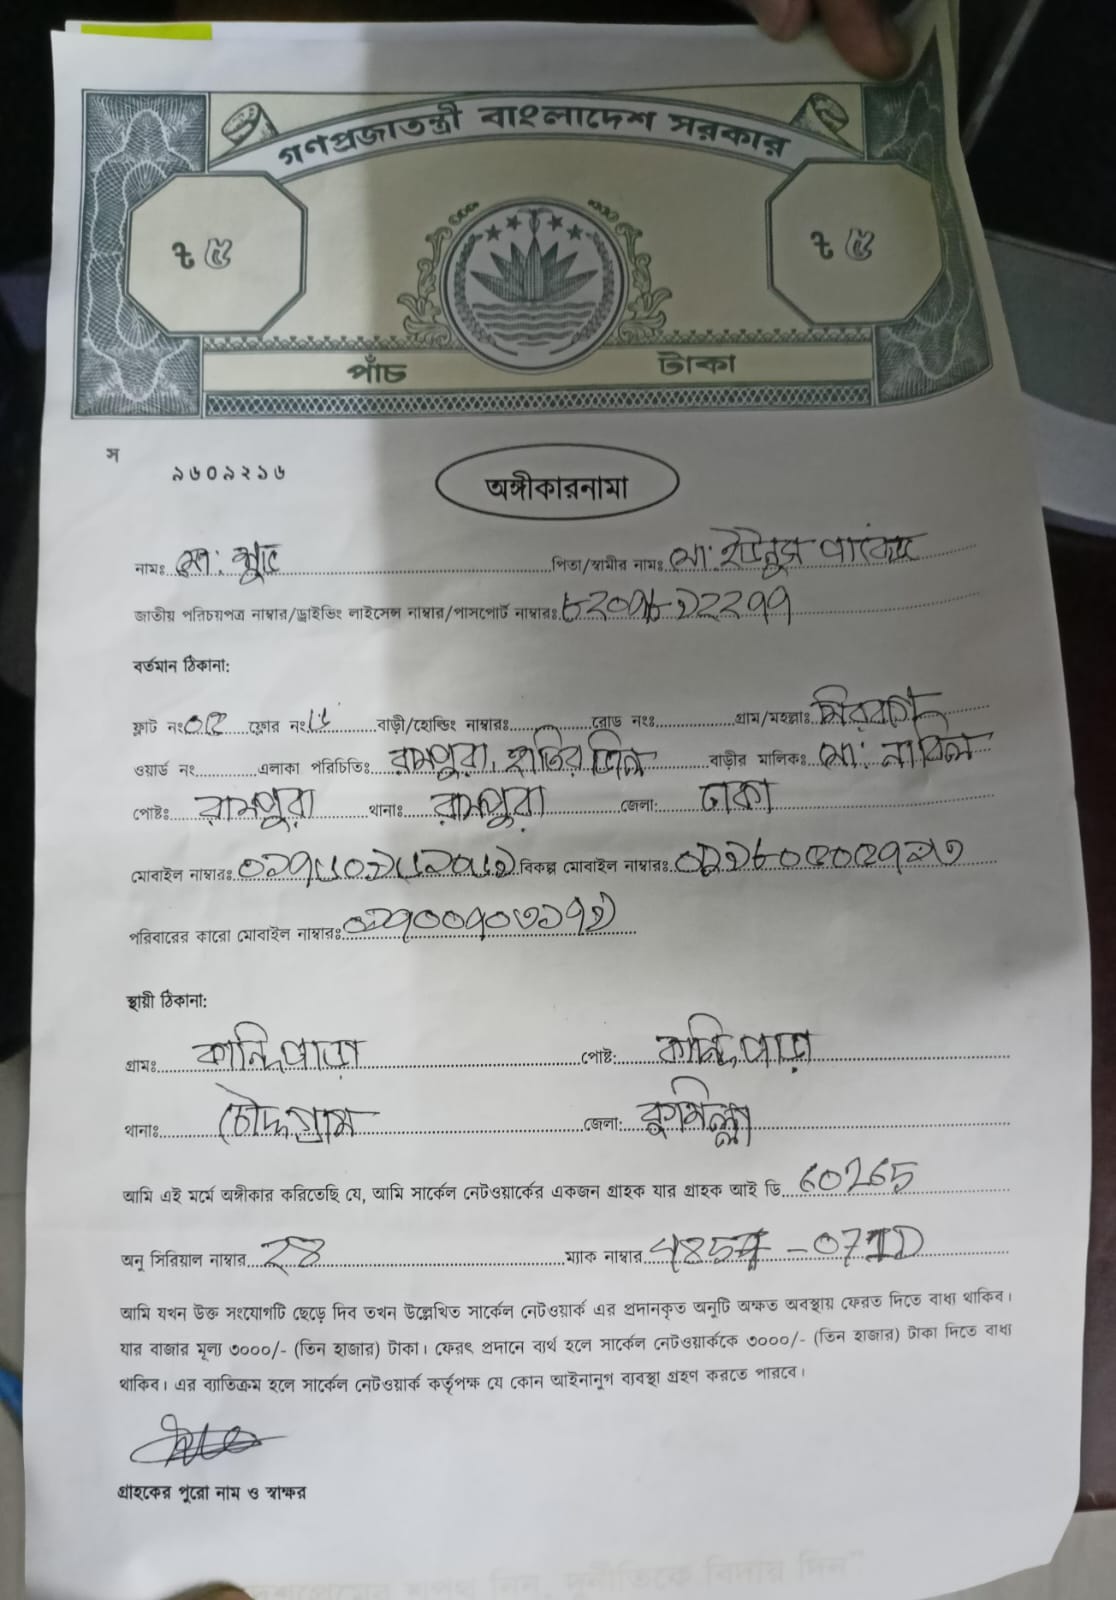 গণপ্রজাতন্ত্রী বাংলাদেশ সরকার
৳ ৫ ৳ ৫
পাঁচ টাকা
স
৯৬০৯২১৬
অঙ্গীকারনামা
নামঃ মো: পিতা/স্বামীর নাম: মো: ইউনুস
জাতীয় পরিচয়পত্র নাম্বার/ড্রাইভিং লাইসেন্স নাম্বার/পাসপোর্ট নাম্বারঃ
বর্তমান ঠিকানা:
ফ্লাট নং ফ্লোর নং বাড়ী/হোল্ডিং নাম্বারঃ রোড নংঃ গ্রাম/মহল্লাঃ
ওয়ার্ড নং এলাকা পরিচিতিঃ রামপুরা, হাতির ঝিল বাড়ীর মালিকঃ মো: নাবিল
পোষ্টঃ রামপুরা থানাঃ রামপুরা জেলা: ঢাকা
মোবাইল নাম্বারঃ বিকল্প মোবাইল নাম্বারঃ
পরিবারের কারো মোবাইল নাম্বারঃ
স্থায়ী ঠিকানা:
গ্রামঃ কান্দিপাড়া পোষ্ট: কান্দিপাড়া
থানাঃ চৌদ্দগ্রাম জেলা: কুমিল্লা
আমি এই মর্মে অঙ্গীকার করিতেছি যে, আমি সার্কেল নেটওয়ার্কের একজন গ্রাহক যার গ্রাহক আই ডি 60265
অনু সিরিয়াল নাম্বার 28 ম্যাক নাম্বার
আমি যখন উক্ত সংযোগটি ছেড়ে দিব তখন উল্লেখিত সার্কেল নেটওয়ার্ক এর প্রদানকৃত অনুটি অক্ষত অবস্থায় ফেরত দিতে বাধ্য থাকিব।
যার বাজার মূল্য ৩০০০/- (তিন হাজার) টাকা। ফেরৎ প্রদানে ব্যর্থ হলে সার্কেল নেটওয়ার্ককে ৩০০০/- (তিন হাজার) টাকা দিতে বাধ্য
থাকিব। এর ব্যাতিক্রম হলে সার্কেল নেটওয়ার্ক কর্তৃপক্ষ যে কোন আইনানুগ ব্যবস্থা গ্রহণ করতে পারবে।
গ্রাহকের পুরো নাম ও স্বাক্ষর